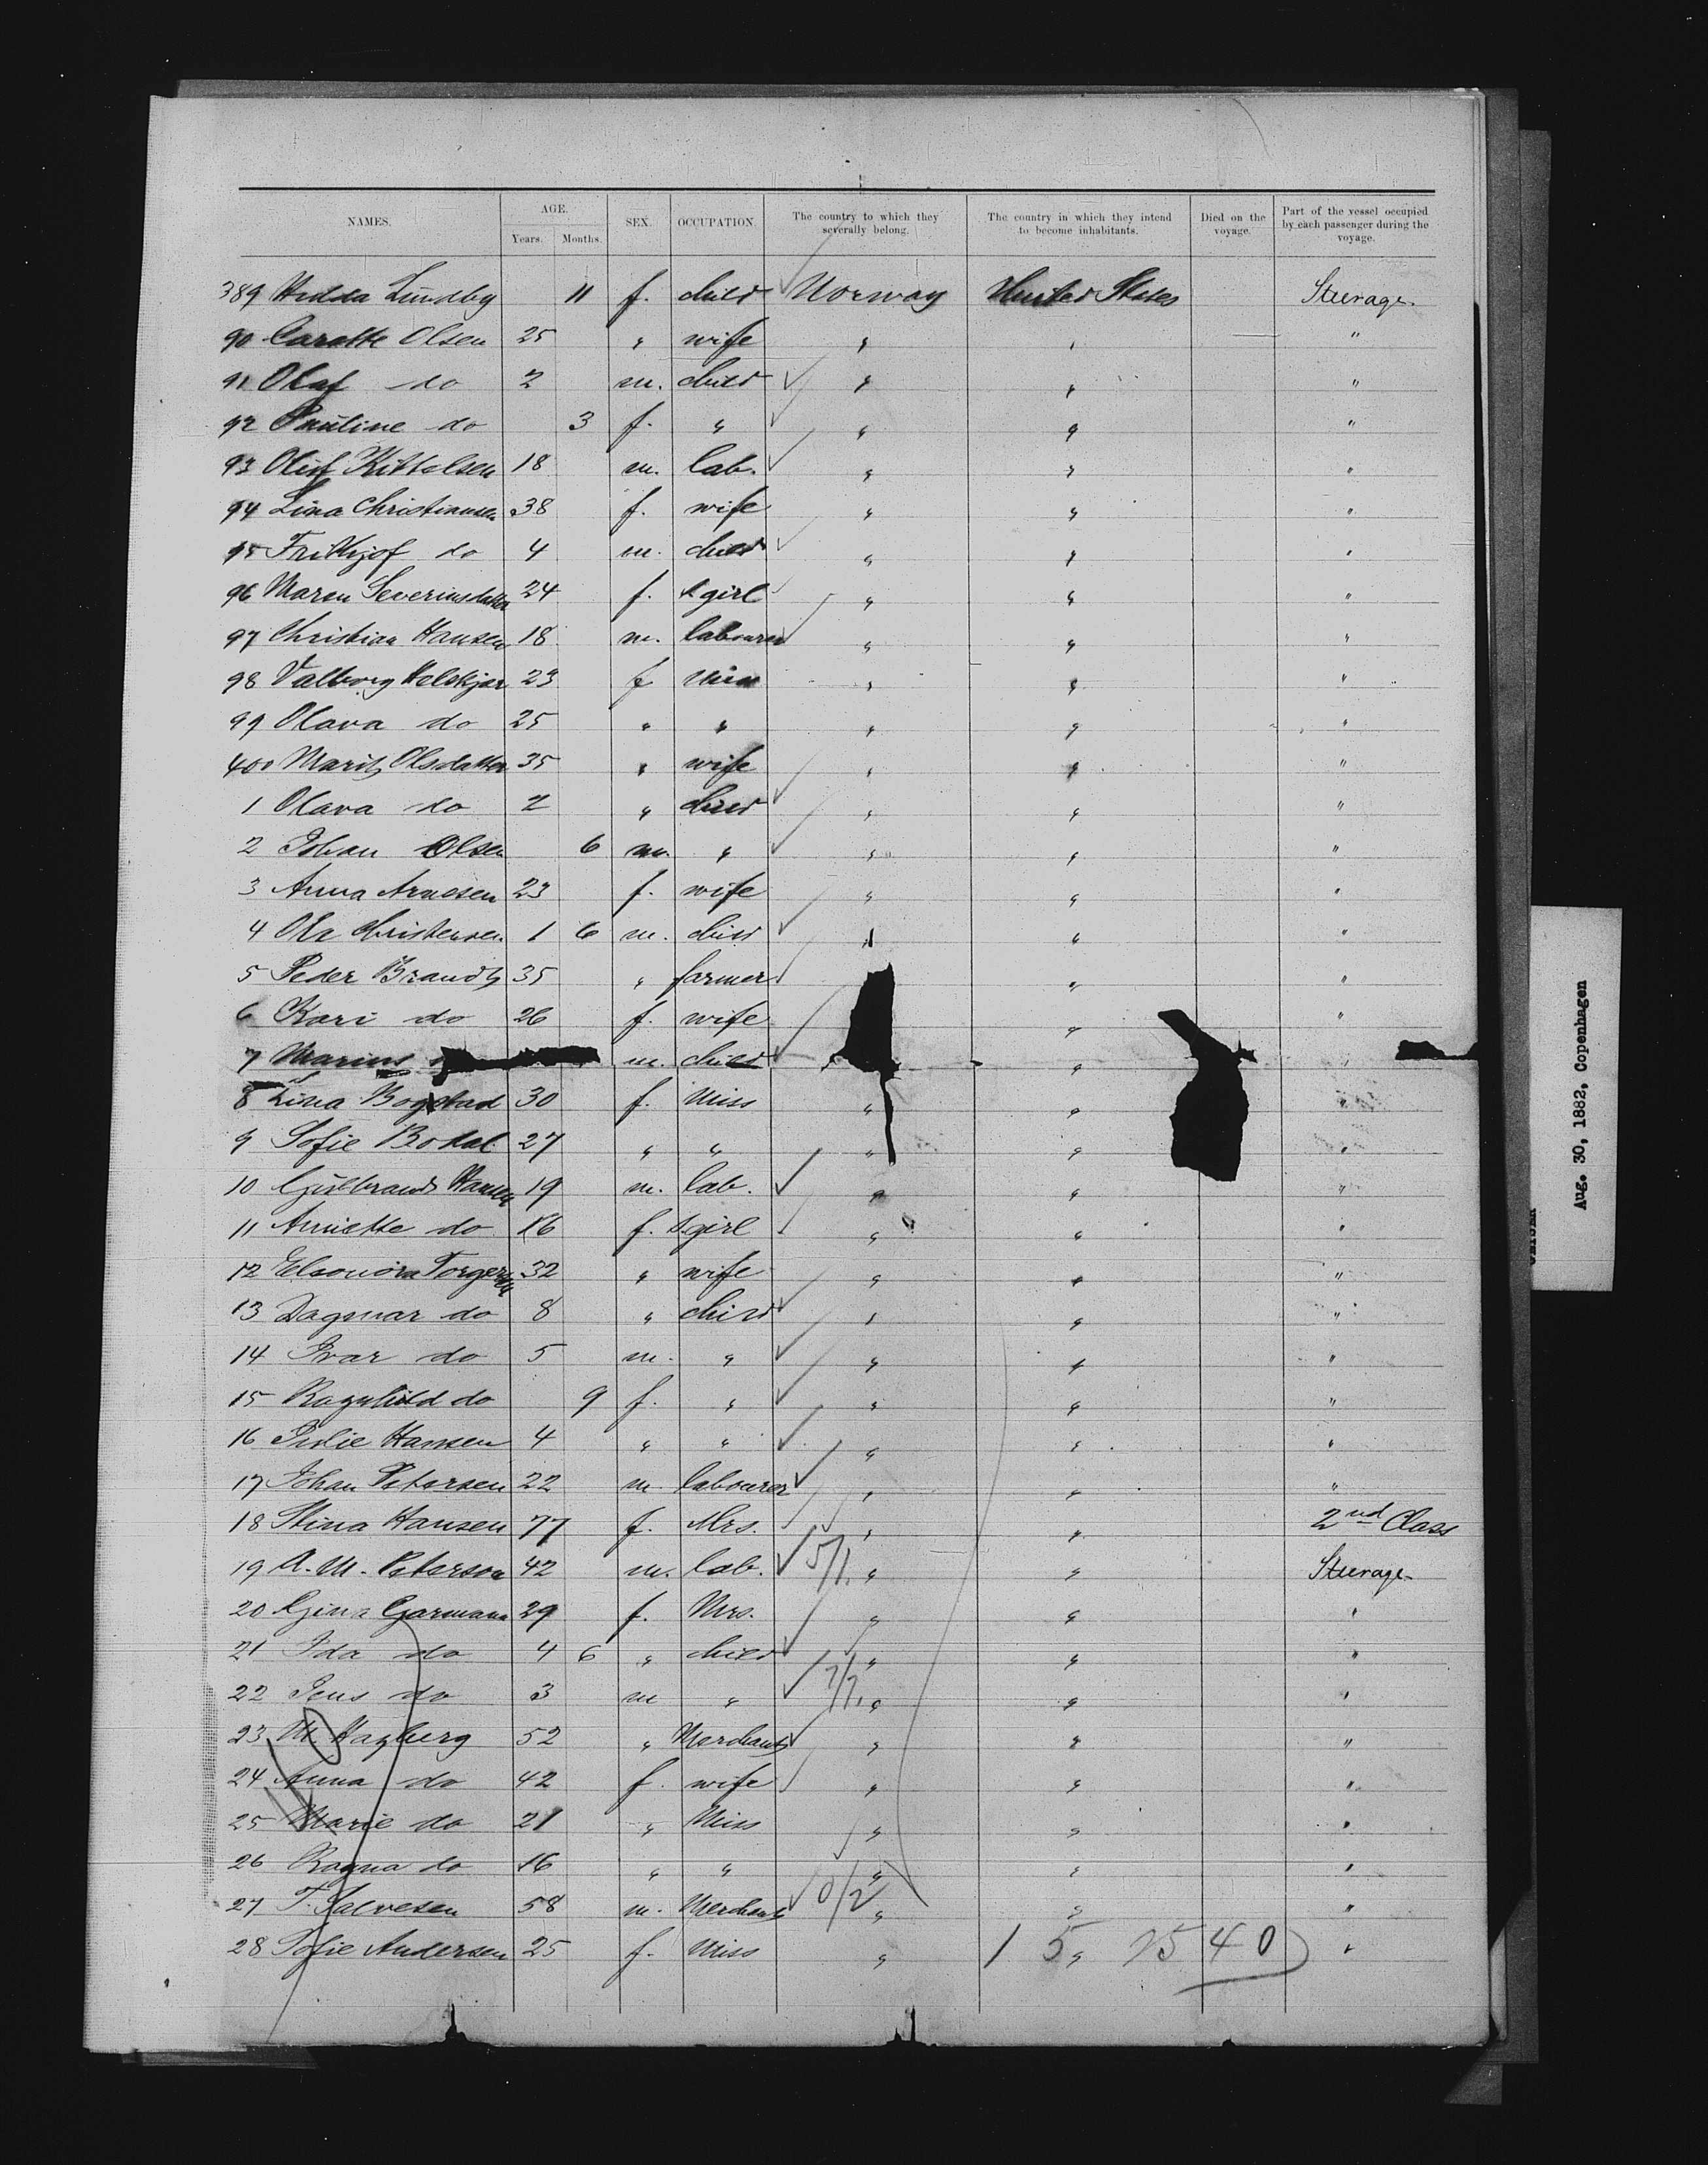 NAMES. AGE. Years. Months. SEX. OCCUPATION. The country to which they severally belong. The country in which they intend to become inhabitants. Died on the voyage. Part of the vessel occupied by each passenger during the voyage.
389 Hedda Lundby 11 f. child Norway United States Steerage.
90 Olsen 25 " wife " " "
91 Olaf do 2 m. child " " "
92 Pauline do 3 f. " " " "
93 Oluf Kittelsen 18 m. lab. " " "
94 Lina Christiansen 38 f. wife " " "
95 Frithjof do 4 m. child " " "
96 Maren Severinsdatter 24 f. s girl " " "
97 Christian Hansen 18 m. labourer " " "
98 Valborg 23 f Miss " " "
99 Olava do 25 " " " " "
400 Marit Olsdatter 35 " wife " " "
1 Olava do 2 " child " " "
2 Johan Olsen 6 m. " " " "
3 Anna Arnesen 23 f. wife " " "
4 Ole Christensen 1 6 m. child " " "
5 Peder Brandt 35 " farmer " "
6 Kari do 26 f. wife " "
7 Marius m. child " " "
8 Lina Bogstad 30 f. Miss " " "
9 Sofie Bodal 27 " " " " "
10 Gulbrand Hansen 19 m. lab. " " "
11 Annette do 16 f. s.girl " " "
12 Eleonora Torgersen 32 " wife " " "
13 Dagmar do 8 " child " " "
14 Ivar do 5 m. " " " "
15 Ragnhild do 9 f. " " " "
16 Julie Hansen 4 " " " " "
17 Johan Petersen 22 m. labourer " " "
18 Stina Hansen 77 f. Mrs. " " 2nd Class
19 A. M. Peterson 42 m. lab. 5/1. " " Steerage
20 Gina Garmann 29 f. Mrs. " " "
21 Ida do 4 6 " child " " "
22 Jens do 3 m " 7/7. " " "
23 M. Hagberg 52 " Merchant " " "
24 Anna do 42 f. wife " " "
25 Marie do 21 " Miss " " "
26 Ragna do 16 " " " " "
27 T. Salvesen 58 m. Merchant 0/2 " " "
28 Sofie Andersen 25 f. Miss " " "
40
1 5 25 40
Aug. 30, 1882, Copenhagen